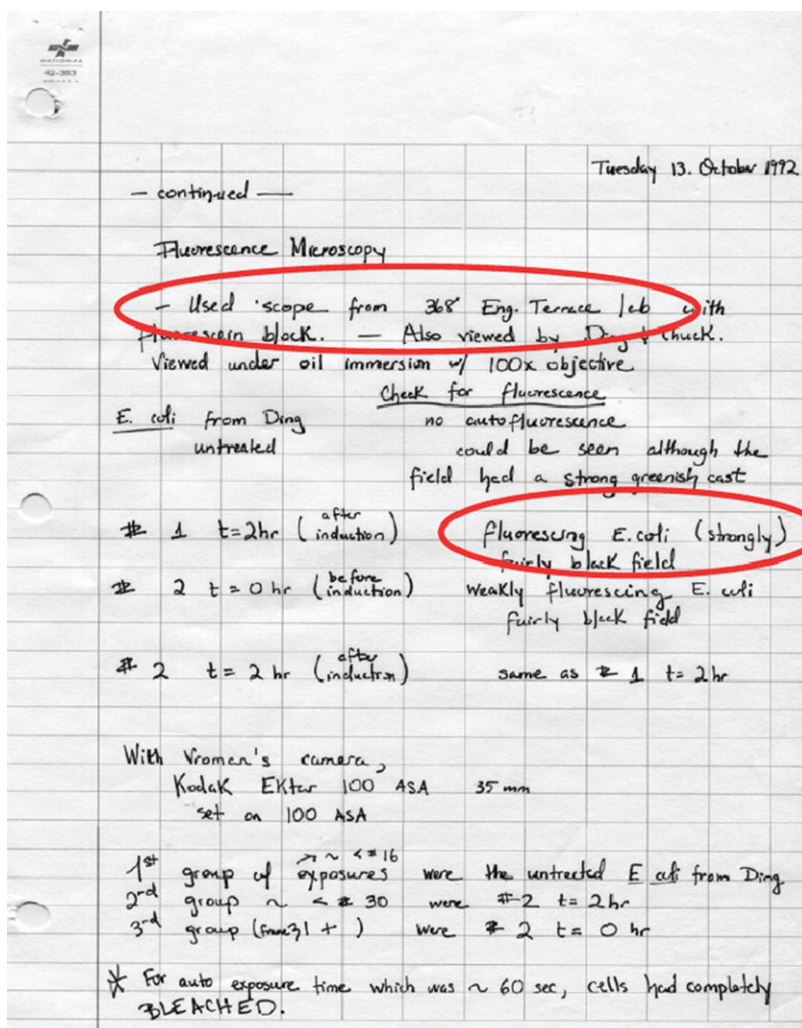 NATIONAL
42-383
Tuesday 13. October 1992
— continued —
Fluorescence Microscopy
— Used 'scope from 368 Eng. Terrace lab with
fluorescein block. — Also viewed by Ding & Chuck.
Viewed under oil immersion w/ 100x objective
Check for fluorescence
E. coli from Ding no autofluorescence
untreated could be seen although the
field had a strong greenish cast
# 1 t=2hr (after induction) fluorescing E.coli (strongly)
fairly black field
# 2 t=0 hr (before induction) weakly fluorescing E. coli
fairly black field
# 2 t=2 hr (after induction) same as # 1 t=2hr
With Vroman's camera,
Kodak EKtar 100 ASA 35 mm
set on 100 ASA
1st group of exposures ~ <#16 were the untreated E coli from Ding
2nd group ~ <# 30 were #2 t=2hr
3rd group (frame 31 + ) were # 2 t=0 hr
* For auto exposure time which was ~ 60 sec, cells had completely
BLEACHED.